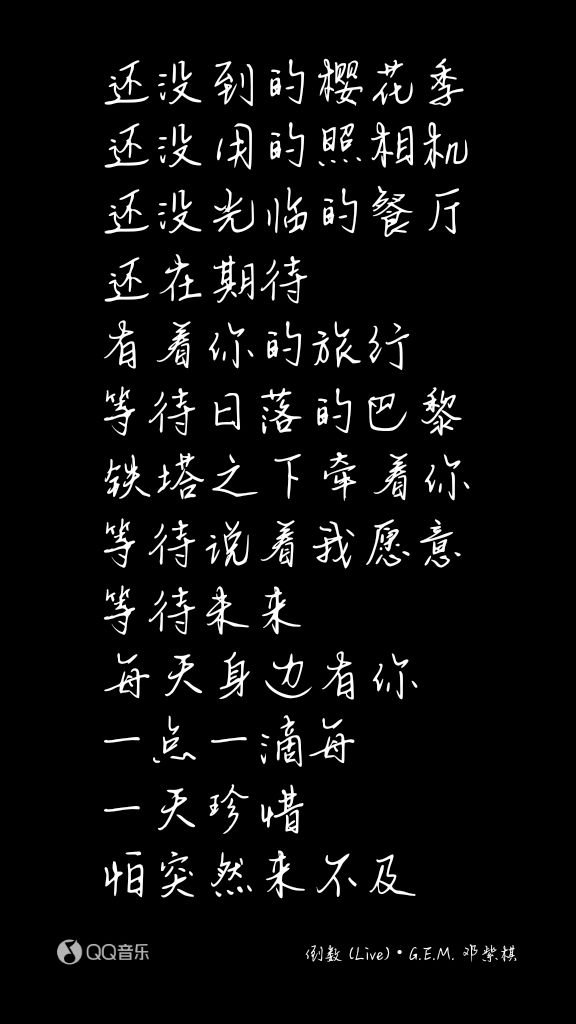 还没到的樱花季
还没用的照相机
还没光临的餐厅
还在期待
有着你的旅行
等待日落的巴黎
铁塔之下牵着你
等待说着我愿意
等待未来
每天身边有你
一点一滴每
一天珍惜
怕突然来不及
QQ音乐
倒数 (Live)•G.E.M. 邓紫棋